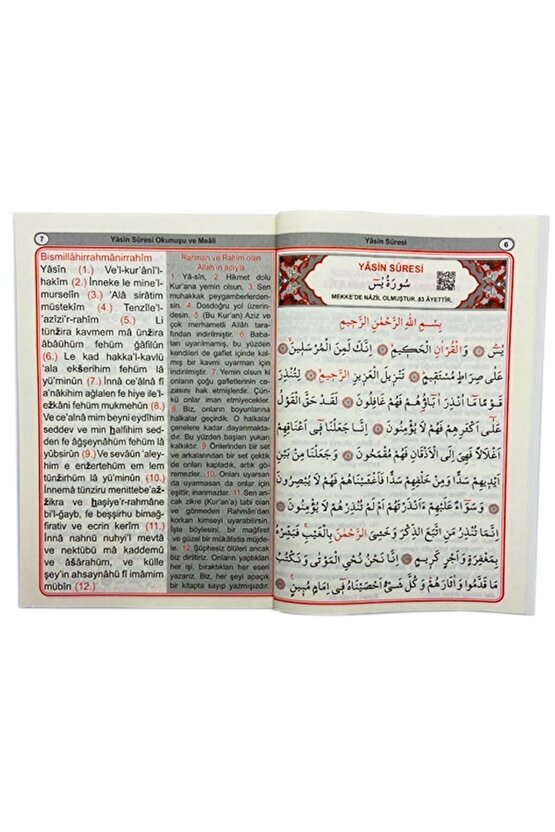 7
Yâsin Sûresi Okunuşu ve Meâli
Bismillâhirrahmânirrahîm
Yâsîn (1.) Ve'l-kur'âni'l-
hakîm (2.) İnneke le mine'l-
murselîn (3.) 'Alâ sirâtim
müstekîm (4.) Tenzîle'l-
'azîzi'r-rahîm (5.) Li
tünžira kavmem mâ ünžira
âbâühüm fehüm ğâfilûn
(6.) Le kad hakka'l-kavlü
'ala ekšerihim fehüm lâ
yü'minûn (7.) İnnâ ce'alnâ fî
a'nâkihim ağlalen fe hiye ile'l-
ežkâni fehüm mukmehûn (8.)
Ve ce'alnâ mim beyni eydîhim
seddev ve min halfihim sed-
den fe âğşeynâhüm fehüm lâ
yübsirûn (9.) Ve sevâün 'aley-
him e enžertehüm em lem
tünžirhüm lâ yü'minûn (10.)
İnnemâ tünziru menittebe'až-
žikra ve haşiye'r-rahmâne
bi'l-ğayb, fe beşşirhu bimağ-
firativ ve ecrin kerîm (11.)
İnnâ nahnü nuhyi'l mevtâ
ve nektübü mâ kaddemû
ve âšârahüm, ve külle
şey'in ahsaynâhü fî imâmim
mübîn (12.)
Rahmân ve Rahîm olan
Allah'ın adıyla
1. Yâ-sîn, 2. Hikmet dolu
Kur'ana yemin olsun, 3. Sen
muhakkak peygamberlerden-
sin. 4. Dosdoğru yol üzerin-
desin. 5. (Bu Kur'an) Aziz ve
çok merhametli Allah tara-
fından indirilmiştir. 6. Baba-
ları uyarılmamış, bu yüzden
kendileri de gaflet içinde kalmı-
ş bir kavmi uyarman için
indirilmiştir. 7. Yemin olsun ki
onların çoğu gafletlerinin ce-
zasını hak etmişlerdir. Çün-
kü onlar iman etmeyecekler.
8. Biz, onların boyunlarına
halkalar geçirdik. O halkalar
çenelere kadar dayanmakta-
dır. Bu yüzden başları yukarı
kalkıktır. 9. Önlerinden bir set
ve arkalarından bir set çektik
de onları kapladık, artık gö-
remezler. 10. Onları uyarsan
da uyarmasan da onlar için
eşittir, inanmazlar. 11. Sen an-
cak zikre (Kur'an'a) tabi olan
ve görmeden Rahmân'dan
korkan kimseyi uyarabilirsin.
İşte böylesini, bir mağfiret
ve güzel bir mükâfatla müjde-
le. 12. Şüphesiz ölüleri ancak
biz diriltiriz. Onların yaptıkları
her işi, bıraktıkları her eseri
yazarız. Biz, her şeyi apaçık
bir kitapta sayıp yazmışızdır.
Yâsin Sûresi
6
YÂSİN SÛRESİ
سُورَةُ يٰسٓ
MEKKE'DE NÂZİL OLMUŞTUR. 83 ÂYETTİR.
بِسْمِ اللّٰهِ الرَّحْمٰنِ الرَّحِيمِ
يٰسٓ ۞ وَالْقُرْاٰنِ الْحَكِيمِ ۞ اِنَّكَ لَمِنَ الْمُرْسَلِينَ ۞
عَلٰى صِرَاطٍ مُسْتَقِيمٍ ۞ تَنْزِيلَ الْعَزِيزِ الرَّحِيمِ ۞ لِتُنْذِرَ
قَوْمًا مَٓا اُنْذِرَ اٰبَٓاؤُ۬هُمْ فَهُمْ غَافِلُونَ ۞ لَقَدْ حَقَّ الْقَوْلُ
عَلٰٓى اَكْثَرِهِمْ فَهُمْ لَا يُؤْمِنُونَ ۞ اِنَّا جَعَلْنَا ف۪ٓي اَعْنَاقِهِمْ
اَغْلَالًا فَهِيَ اِلَى الْاَذْقَانِ فَهُمْ مُقْمَحُونَ ۞ وَجَعَلْنَا مِنْ بَيْنِ
اَيْدِيهِمْ سَدًّا وَمِنْ خَلْفِهِمْ سَدًّا فَاَغْشَيْنَاهُمْ فَهُمْ لَا يُبْصِرُونَ
۞ وَسَوَٓاءٌ عَلَيْهِمْ ءَاَنْذَرْتَهُمْ اَمْ لَمْ تُنْذِرْهُمْ لَا يُؤْمِنُونَ ۞
اِنَّمَا تُنْذِرُ مَنِ اتَّبَعَ الذِّكْرَ وَخَشِيَ الرَّحْمٰنَ بِالْغَيْبِ فَبَشِّرْهُ
بِمَغْفِرَةٍ وَاَجْرٍ كَرِيمٍ ۞ اِنَّا نَحْنُ نُحْيِ الْمَوْتٰى وَنَكْتُبُ
مَا قَدَّمُوا وَاٰثَارَهُمْ وَكُلَّ شَيْءٍ اَحْصَيْنَاهُ ف۪ٓي اِمَامٍ مُبِينٍ ۞